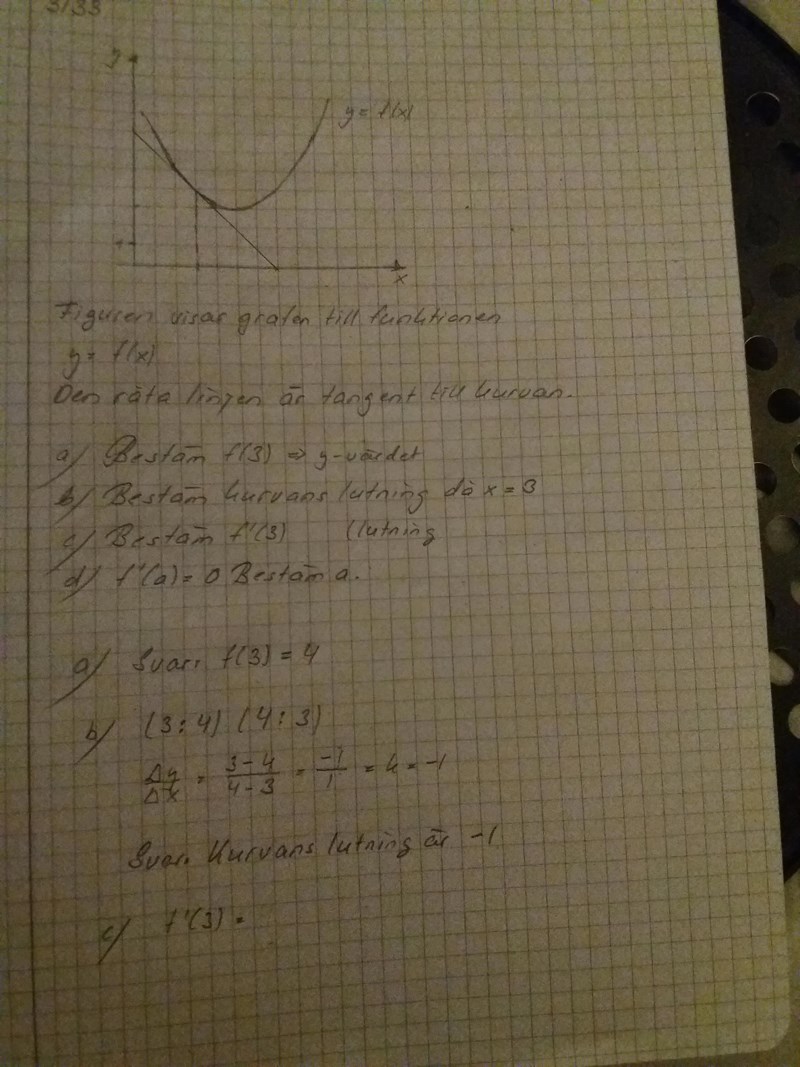 3133
y
y = f(x)
x
Figuren visar grafen till funktionen
y = f(x)
Den räta linjen är tangent till kurvan.
a) Bestäm f(3) => y-värdet
b) Bestäm kurvans lutning då x = 3
c) Bestäm f'(3) (lutning
d) f'(a) = 0 Bestäm a.
a) Svar: f(3) = 4
b) (3:4) (4:3)
Δy/Δx = 3-4/4-3 = -1/1 = k = -1
Svar: Kurvans lutning är -1
c) f'(3) =